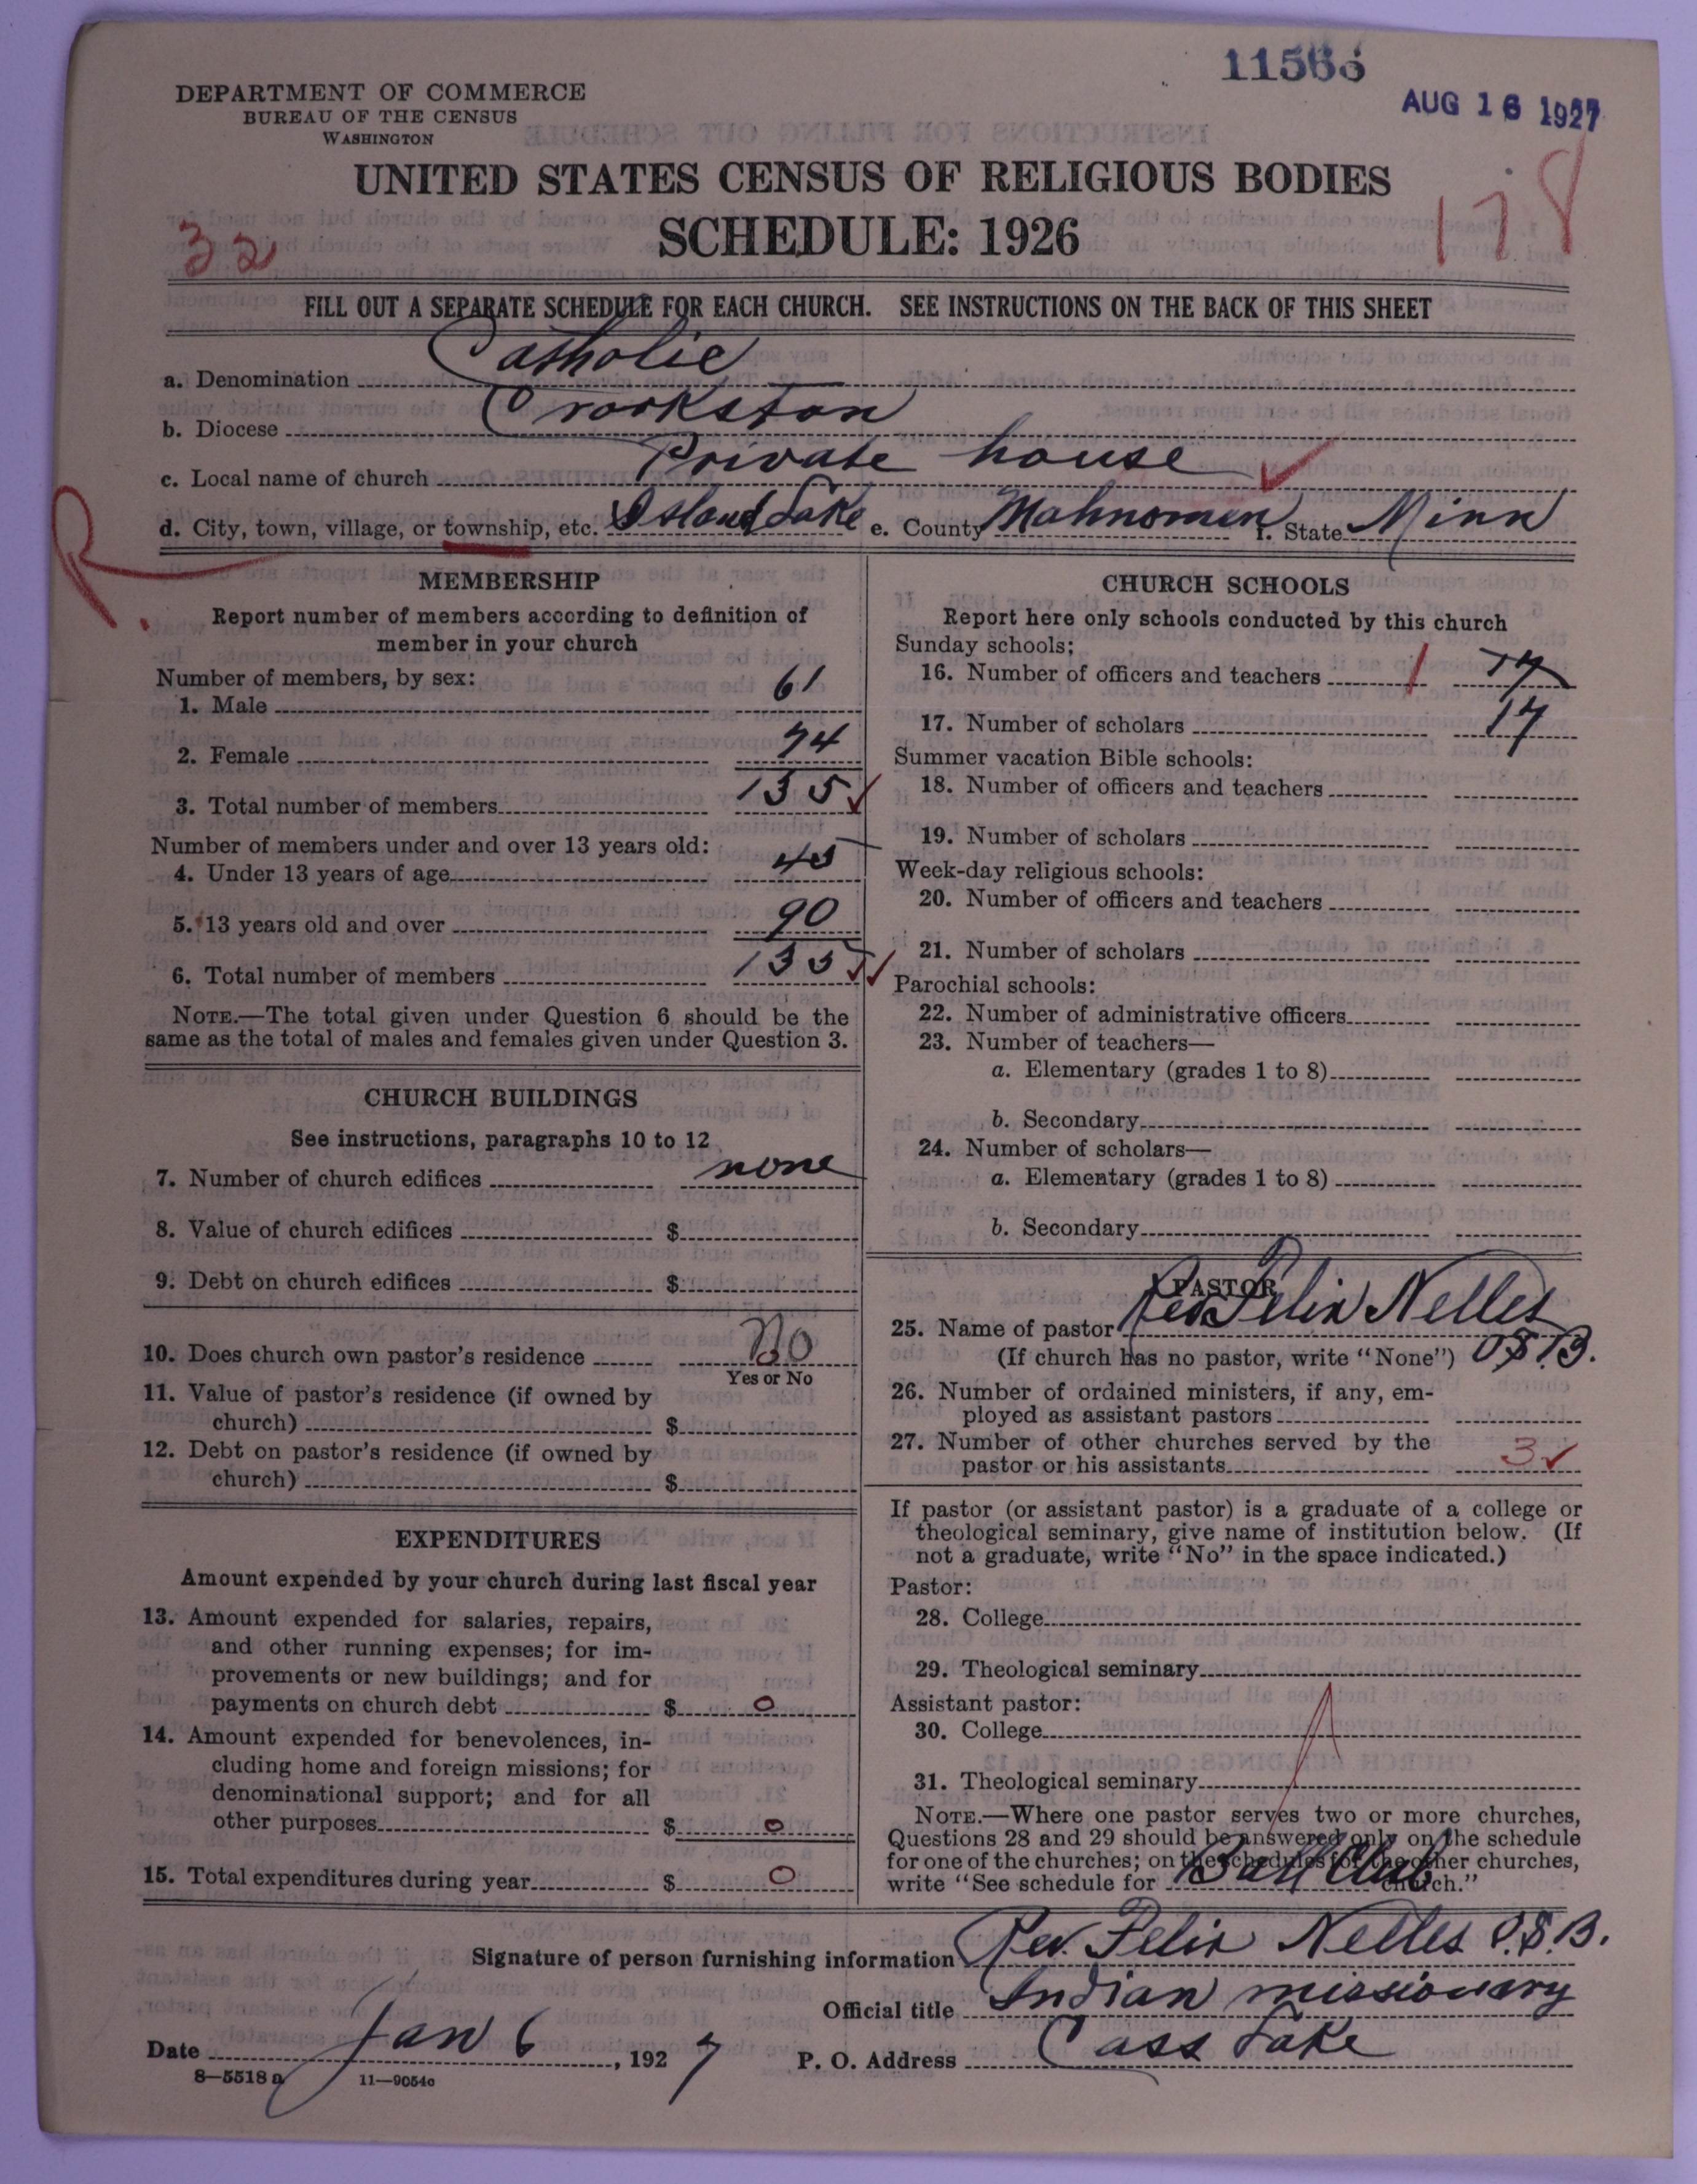 11566
AUG 16 1927
DEPARTMENT OF COMMERCE
BUREAU OF THE CENSUS
WASHINGTON
UNITED STATES CENSUS OF RELIGIOUS BODIES
SCHEDULE: 1926
32
178
FILL OUT A SEPARATE SCHEDULE FOR EACH CHURCH. SEE INSTRUCTIONS ON THE BACK OF THIS SHEET
a. Denomination Catholic
b. Diocese Crookston
c. Local name of church Private house
d. City, town, village, or township, etc. Island Lake e. County Mahnomen f. State Minn
R.
MEMBERSHIP
Report number of members according to definition of
member in your church
Number of members, by sex:
1. Male 61
2. Female 74
3. Total number of members 135
Number of members under and over 13 years old:
4. Under 13 years of age 45
5. 13 years old and over 90
6. Total number of members 135
NOTE.—The total given under Question 6 should be the
same as the total of males and females given under Question 3.
CHURCH BUILDINGS
See instructions, paragraphs 10 to 12
7. Number of church edifices none
8. Value of church edifices $
9. Debt on church edifices $
10. Does church own pastor's residence No
Yes or No
11. Value of pastor's residence (if owned by
church) $
12. Debt on pastor's residence (if owned by
church) $
EXPENDITURES
Amount expended by your church during last fiscal year
13. Amount expended for salaries, repairs,
and other running expenses; for im-
provements or new buildings; and for
payments on church debt $ 0
14. Amount expended for benevolences, in-
cluding home and foreign missions; for
denominational support; and for all
other purposes $ 0
15. Total expenditures during year $ 0
CHURCH SCHOOLS
Report here only schools conducted by this church
Sunday schools:
16. Number of officers and teachers 1 17
17. Number of scholars 17
Summer vacation Bible schools:
18. Number of officers and teachers
19. Number of scholars
Week-day religious schools:
20. Number of officers and teachers
21. Number of scholars
Parochial schools:
22. Number of administrative officers
23. Number of teachers—
a. Elementary (grades 1 to 8)
b. Secondary
24. Number of scholars—
a. Elementary (grades 1 to 8)
b. Secondary
PASTOR
25. Name of pastor Rev Felix Nelles
(If church has no pastor, write "None") O.S.B.
26. Number of ordained ministers, if any, em-
ployed as assistant pastors
27. Number of other churches served by the
pastor or his assistants 3
If pastor (or assistant pastor) is a graduate of a college or
theological seminary, give name of institution below. (If
not a graduate, write "No" in the space indicated.)
Pastor:
28. College
29. Theological seminary
Assistant pastor:
30. College
31. Theological seminary
NOTE.—Where one pastor serves two or more churches,
Questions 28 and 29 should be answered only on the schedule
for one of the churches; on the schedules for the other churches,
write "See schedule for Ball Club church."
Signature of person furnishing information Rev. Felix Nelles O.S.B.
Official title Indian missionary
Date Jan 6, 1927 P. O. Address Cass Lake
8—5518 a 11—9054c